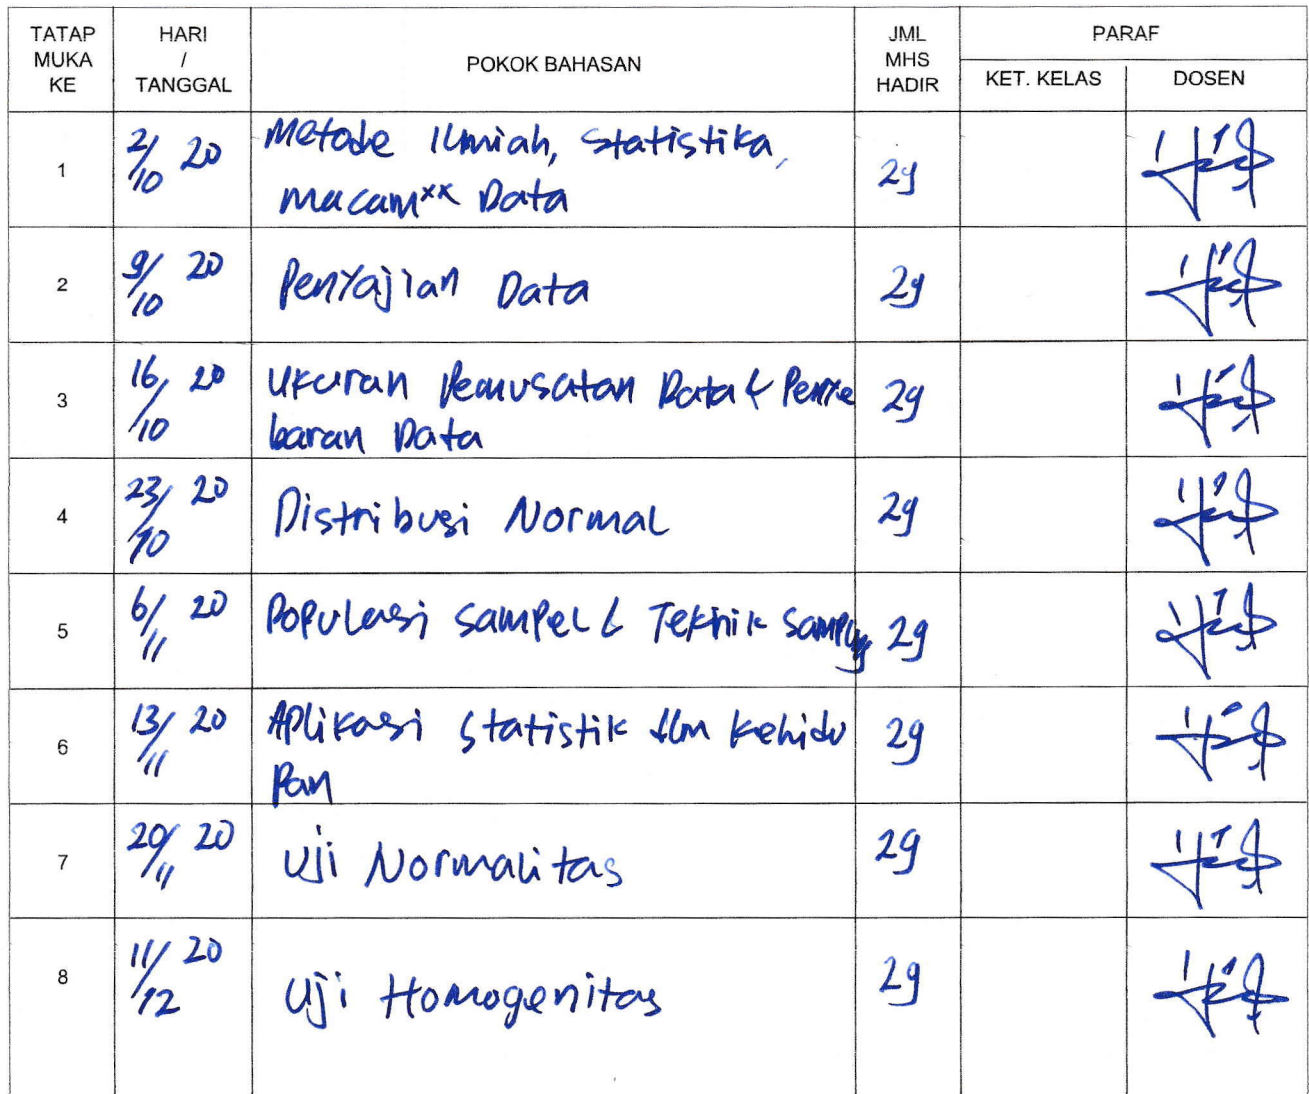 TATAP MUKA KE
HARI / TANGGAL
POKOK BAHASAN
JML MHS HADIR
PARAF
KET. KELAS
DOSEN
1
2/10 20
Metode Ilmiah, Statistika,
macamxx Data
29
2
9/10 20
Penyajian Data
29
3
16/10 20
Ukuran Pemusatan Data & Penye
baran Data
29
4
23/10 20
Distribusi Normal
29
5
6/11 20
Populasi Sampel & Teknik Samplg
29
6
13/11 20
Aplikasi Statistik dlm kehidu
pan
29
7
20/11 20
Uji Normalitas
29
8
11/12 20
Uji Homogenitas
29